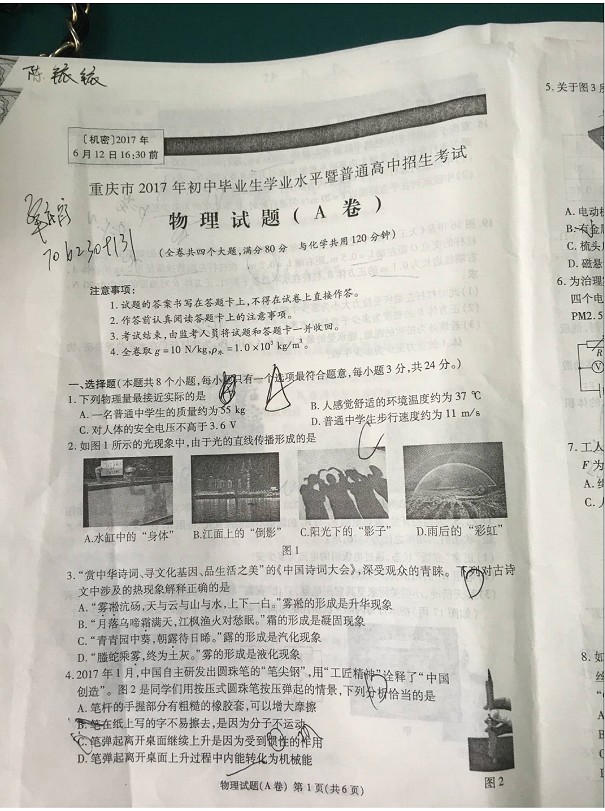 陈
[机密]2017 年
6 月 12 日 16:30 前
重庆市 2017 年初中毕业生学业水平暨普通高中招生考试
物理试题(A 卷)
(全卷共四个大题,满分80分 与化学共用120分钟)
注意事项:
1. 试题的答案书写在答题卡上,不得在试卷上直接作答。
2. 作答前认真阅读答题卡上的注意事项。
3. 考试结束,由监考人员将试题和答题卡一并收回。
4. 全卷取 g=10 N/kg,ρ水=1.0×10³ kg/m³。
一、选择题(本题共 8 个小题,每小题只有一个选项最符合题意,每小题 3 分,共 24 分。)
1. 下列物理量最接近实际的是
A. 一名普通中学生的质量约为 55 kg
B. 人感觉舒适的环境温度约为 37 ℃
C. 对人体的安全电压不高于 3.6 V
D. 普通中学生步行速度约为 11 m/s
2. 如图 1 所示的光现象中,由于光的直线传播形成的是
A.水缸中的“身体” B.江面上的“倒影” C.阳光下的“影子” D.雨后的“彩虹”
图 1
3. “赏中华诗词、寻文化基因、品生活之美”的《中国诗词大会》,深受观众的青睐。下列对古诗
文中涉及的热现象解释正确的是
A. “雾凇沆砀,天与云与山与水,上下一白。”雾凇的形成是升华现象
B. “月落乌啼霜满天,江枫渔火对愁眠。”霜的形成是凝固现象
C. “青青园中葵,朝露待日晞。”露的形成是汽化现象
D. “螣蛇乘雾,终为土灰。”雾的形成是液化现象
4. 2017 年 1 月,中国自主研发出圆珠笔的“笔尖钢”,用“工匠精神”诠释了“中国
创造”。图 2 是同学们用按压式圆珠笔按压弹起的情景,下列分析恰当的是
A. 笔杆的手握部分有粗糙的橡胶套,可以增大摩擦
B. 笔在纸上写的字不易擦去,是因为分子不运动
C. 笔弹起离开桌面继续上升是因为受到惯性的作用
D. 笔弹起离开桌面上升过程中内能转化为机械能
图 2
物理试题(A 卷) 第 1 页(共 6 页)
5. 关于图 3
A. 电动
B. 有金
C. 梳头
D. 磁悬
6. 为治理
四个电
PM2.5
R
V
7. 工人
F 为
A.
C.
8. 如